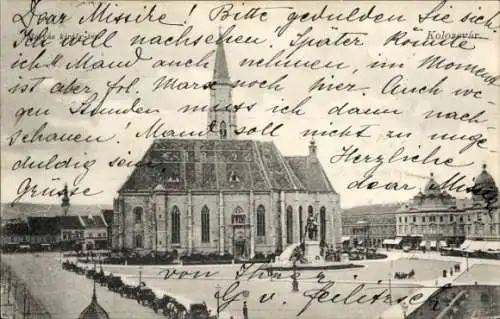 Dear Missire! Bitte gedulden Sie sich.
Kolozsvár.
Ich will nachsehen. Später könnte
ich Mand auch nehmen, im Moment
ist aber frl. Mara noch hier. Auch we-
gen Stunden muss ich dann nach
schauen. Mand soll nicht zu unge
duldig sein. Herzliche
Grüsse dear Missire
von Ihrer
G. v.